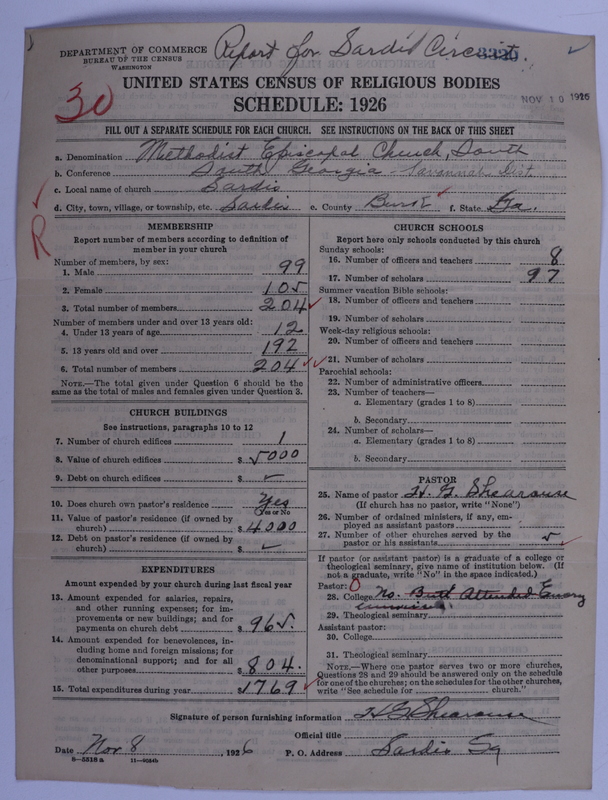 Report for Sardis Circuit.
DEPARTMENT OF COMMERCE
BUREAU OF THE CENSUS
WASHINGTON
UNITED STATES CENSUS OF RELIGIOUS BODIES
SCHEDULE: 1926
NOV 10 1926
30
FILL OUT A SEPARATE SCHEDULE FOR EACH CHURCH. SEE INSTRUCTIONS ON THE BACK OF THIS SHEET
a. Denomination Methodist Episcopal Church, South
b. Conference South Georgia - Savannah Dist.
c. Local name of church Sardis
d. City, town, village, or township, etc. Sardis e. County Burke f. State Ga.
R
MEMBERSHIP
Report number of members according to definition of
member in your church
Number of members, by sex:
1. Male 99
2. Female 105
3. Total number of members 204
Number of members under and over 13 years old:
4. Under 13 years of age 12
5. 13 years old and over 192
6. Total number of members 204
NOTE.—The total given under Question 6 should be the
same as the total of males and females given under Question 3.
CHURCH BUILDINGS
See instructions, paragraphs 10 to 12
7. Number of church edifices 1
8. Value of church edifices $ 5000
9. Debt on church edifices $
10. Does church own pastor's residence Yes
Yes or No
11. Value of pastor's residence (if owned by
church) $ 4000
12. Debt on pastor's residence (if owned by
church) $
EXPENDITURES
Amount expended by your church during last fiscal year
13. Amount expended for salaries, repairs,
and other running expenses; for im-
provements or new buildings; and for
payments on church debt $ 965.
14. Amount expended for benevolences, in-
cluding home and foreign missions; for
denominational support; and for all
other purposes $ 804.
15. Total expenditures during year $ 1769
CHURCH SCHOOLS
Report here only schools conducted by this church
Sunday schools:
16. Number of officers and teachers 8
17. Number of scholars 97
Summer vacation Bible schools:
18. Number of officers and teachers
19. Number of scholars
Week-day religious schools:
20. Number of officers and teachers
21. Number of scholars
Parochial schools:
22. Number of administrative officers
23. Number of teachers—
a. Elementary (grades 1 to 8)
b. Secondary
24. Number of scholars—
a. Elementary (grades 1 to 8)
b. Secondary
PASTOR
25. Name of pastor H. G. Shearouse
(If church has no pastor, write "None")
26. Number of ordained ministers, if any, em-
ployed as assistant pastors
27. Number of other churches served by the
pastor or his assistants 5
If pastor (or assistant pastor) is a graduate of a college or
theological seminary, give name of institution below. (If
not a graduate, write "No" in the space indicated.)
Pastor: 0
28. College No. But Attended Emory
29. Theological seminary
Assistant pastor:
30. College
31. Theological seminary
NOTE.—Where one pastor serves two or more churches,
Questions 28 and 29 should be answered only on the schedule
for one of the churches; on the schedules for the other churches,
write "See schedule for church."
Signature of person furnishing information H G Shearouse
Official title
Date Nov 8, 1926 P. O. Address Sardis Ga
8—5518 a 11—9024b